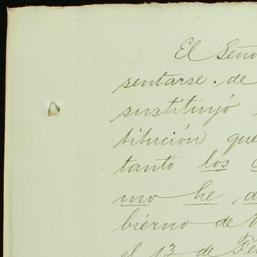 El Seño
sentarse de
sustituyó
titución que
tanto los
mo he d
bierno de
el 13 de Fe